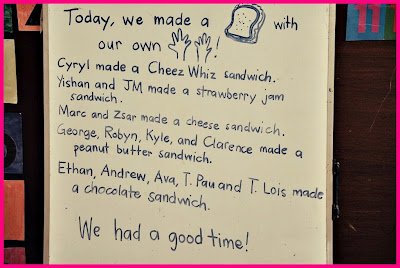 Today, we made a with
our own !
Cyryl made a Cheez Whiz sandwich.
Yishan and JM made a strawberry jam
sandwich.
Marc and Zsar made a cheese sandwich.
George, Robyn, Kyle, and Clarence made a
peanut butter sandwich.
Ethan, Andrew, Ava, T. Pau and T. Lois made
a chocolate sandwich.
We had a good time!